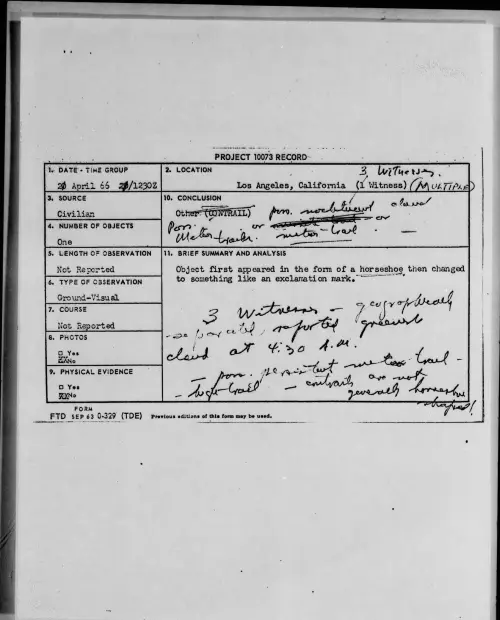 PROJECT 10073 RECORD
1. DATE - TIME GROUP
20 April 66 20/1230Z
2. LOCATION
3 Witnesses.
Los Angeles, California (1 Witness) (MULTIPLE)
3. SOURCE
Civilian
10. CONCLUSION
Other (CONTRAIL) poss. noctilucent cloud
or or
Poss. Meteor trail. meteor trail
4. NUMBER OF OBJECTS
One
5. LENGTH OF OBSERVATION
Not Reported
11. BRIEF SUMMARY AND ANALYSIS
Object first appeared in the form of a horseshoe then changed
to something like an exclamation mark.
3 Witnesses - geographically
separated, reported
cloud at 4:30 A.M.
- poss. persistent meteor trail -
- trail - contrails are not
generally horseshoe
shaped!
6. TYPE OF OBSERVATION
Ground-Visual
7. COURSE
Not Reported
8. PHOTOS
□ Yes
XX No
9. PHYSICAL EVIDENCE
□ Yes
XX No
FORM
FTD SEP 63 0-329 (TDE) Previous editions of this form may be used.